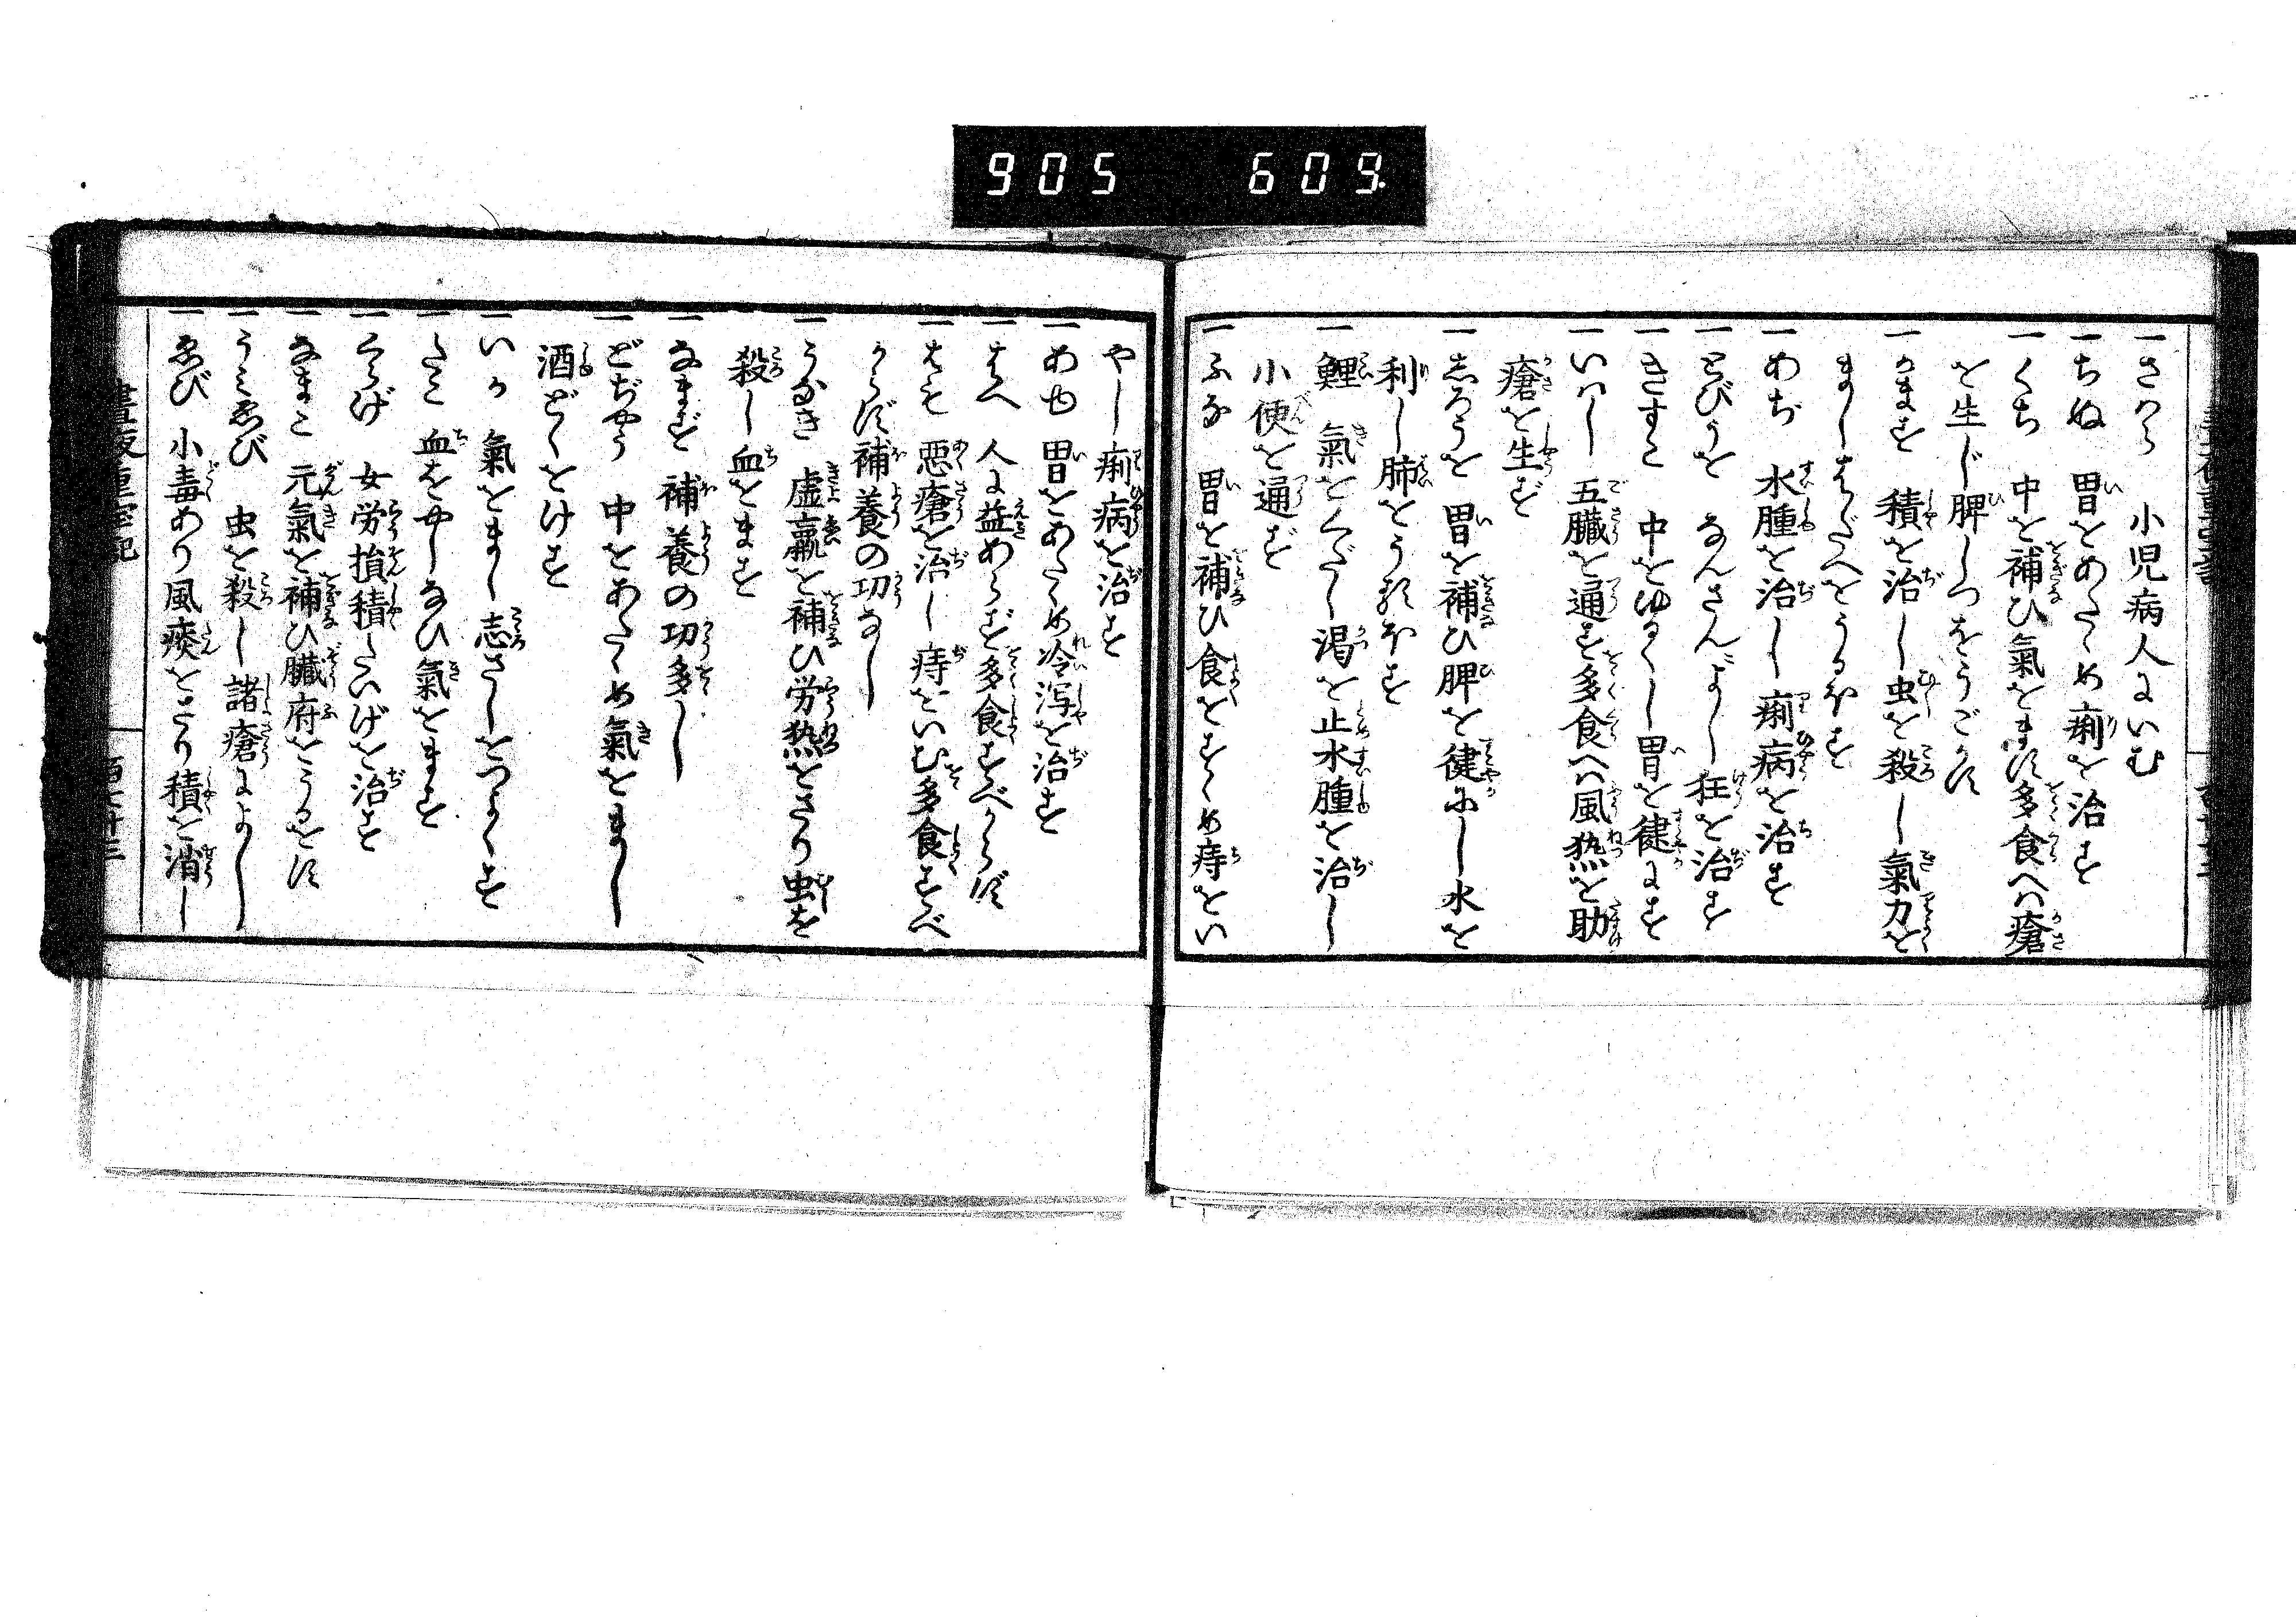 905 609
一さわら 小児病人にいむ
一ちぬ 胃をあたゝめ痢を治す
一くち 中を補ひ氣をます多食へハ瘡
を生じ脾しつをうごかす
一かます 積を治し虫を殺し氣力を
ましはだへをうるほす
一あぢ 水腫を治し痢病を治す
一とびうを なんざんによし狂を治す
一きすこ 中をゆるくし胃を健にす
一いわし 五臓を通す多食へハ風熱を助
瘡を生ず
一しろうを 胃を補ひ脾を健にし水を
利し肺をうるほす
一鯉 氣をくだし渇を止水腫を治し
小便を通ず
一ふな 胃を補ひ食をすゝめ痔をい
やし痢病を治す
一あゆ 胃をあたゝめ冷瀉を治す
一はへ 人に益あらず多食すべからず
一はも 悪瘡を治し痔をいむ多食すべ
からず補養の功なし
一うなき 虚羸を補ひ労熱をさり虫を
殺し血をます
一なまず 補養の功多し
一どぢやう 中をあたゝめ氣をまし
酒どくをけす
一いか 氣をまし志さしをつよくす
一たこ 血をやしなひ氣をます
一くらげ 女労損積たいげを治す
一なまこ 元氣を補ひ臓府をうるをす
一うミゑび 虫を殺し諸瘡によし
一ゑび 小毒あり風痰をさり積を消し